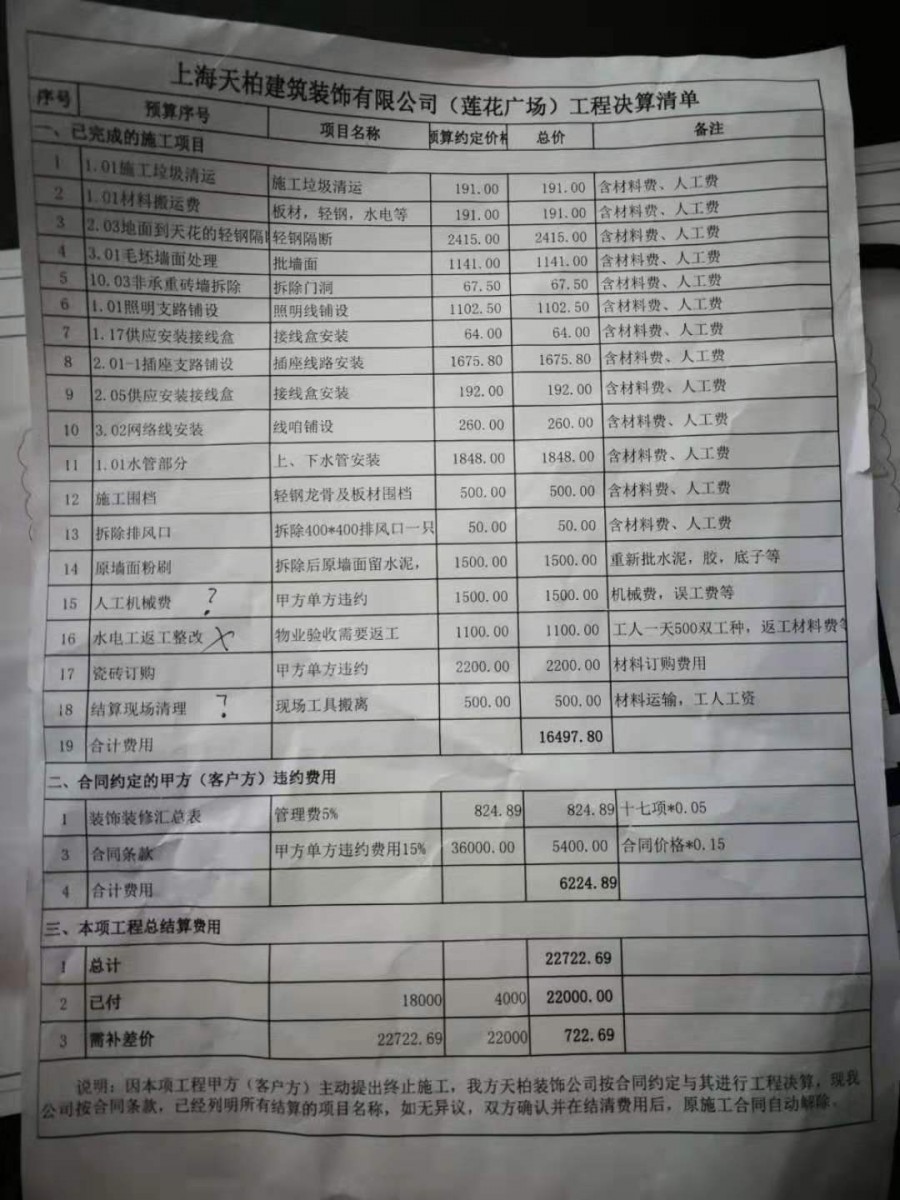 上海天柏建筑装饰有限公司（莲花广场）工程决算清单
序号 预算序号 项目名称 预算约定价格 总价 备注
一、已完成的施工项目
1 1.01施工垃圾清运 施工垃圾清运 191.00 191.00 含材料费、人工费
2 1.01材料搬运费 板材，轻钢，水电等 191.00 191.00 含材料费、人工费
3 2.03地面到天花的轻钢隔 轻钢隔断 2415.00 2415.00 含材料费、人工费
4 3.01毛坯墙面处理 批墙面 1141.00 1141.00 含材料费、人工费
5 10.03非承重砖墙拆除 拆除门洞 67.50 67.50 含材料费、人工费
6 1.01照明支路铺设 照明线铺设 1102.50 1102.50 含材料费、人工费
7 1.17供应安装接线盒 接线盒安装 64.00 64.00 含材料费、人工费
8 2.01-1插座支路铺设 插座线路安装 1675.80 1675.80 含材料费、人工费
9 2.05供应安装接线盒 接线盒安装 192.00 192.00 含材料费、人工费
10 3.02网络线安装 线咱铺设 260.00 260.00 含材料费、人工费
11 1.01水管部分 上、下水管安装 1848.00 1848.00 含材料费、人工费
12 施工围档 轻钢龙骨及板材围档 500.00 500.00 含材料费、人工费
13 拆除排风口 拆除400*400排风口一只 50.00 50.00 含材料费、人工费
14 原墙面粉刷 拆除后原墙面留水泥， 1500.00 1500.00 重新批水泥，胶，底子等
15 人工机械费 ? 甲方单方违约 1500.00 1500.00 机械费，误工费等
16 水电工返工整改 X 物业验收需要返工 1100.00 1100.00 工人一天500双工种，返工材料费等
17 瓷砖订购 甲方单方违约 2200.00 2200.00 材料订购费用
18 结算现场清理 ? 现场工具搬离 500.00 500.00 材料运输，工人工资
19 合计费用 16497.80
二、合同约定的甲方（客户方）违约费用
1 装饰装修汇总表 管理费5% 824.89 824.89 十七项*0.05
3 合同条款 甲方单方违约费用15% 36000.00 5400.00 合同价格*0.15
4 合计费用 6224.89
三、本项工程总结算费用
1 总计 22722.69
2 已付 18000 4000 22000.00
3 需补差价 22722.69 22000 722.69
说明：因本项工程甲方（客户方）主动提出终止施工，我方天柏装饰公司按合同约定与其进行工程决算，现我
公司按合同条款，已经列明所有结算的项目名称，如无异议，双方确认并在结清费用后，原施工合同自动解除。